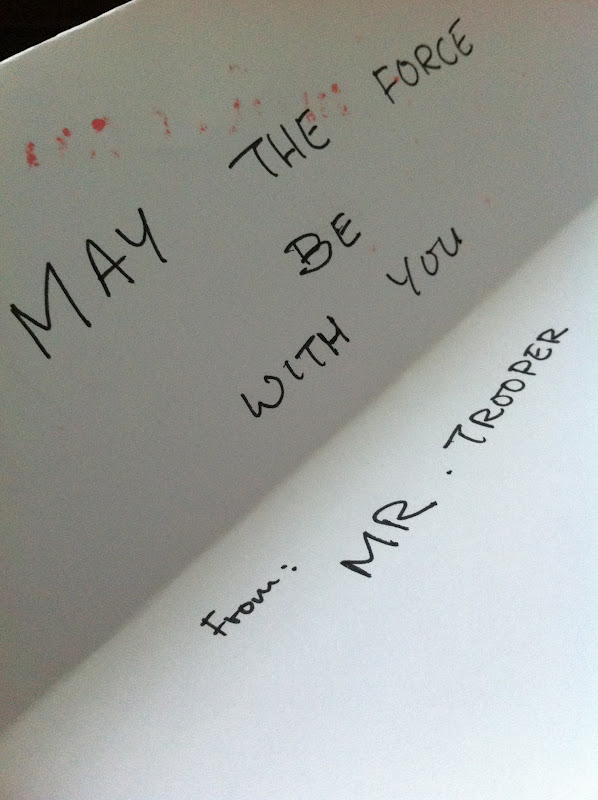 MAY THE FORCE
BE
WITH YOU
From: MR. TROOPER